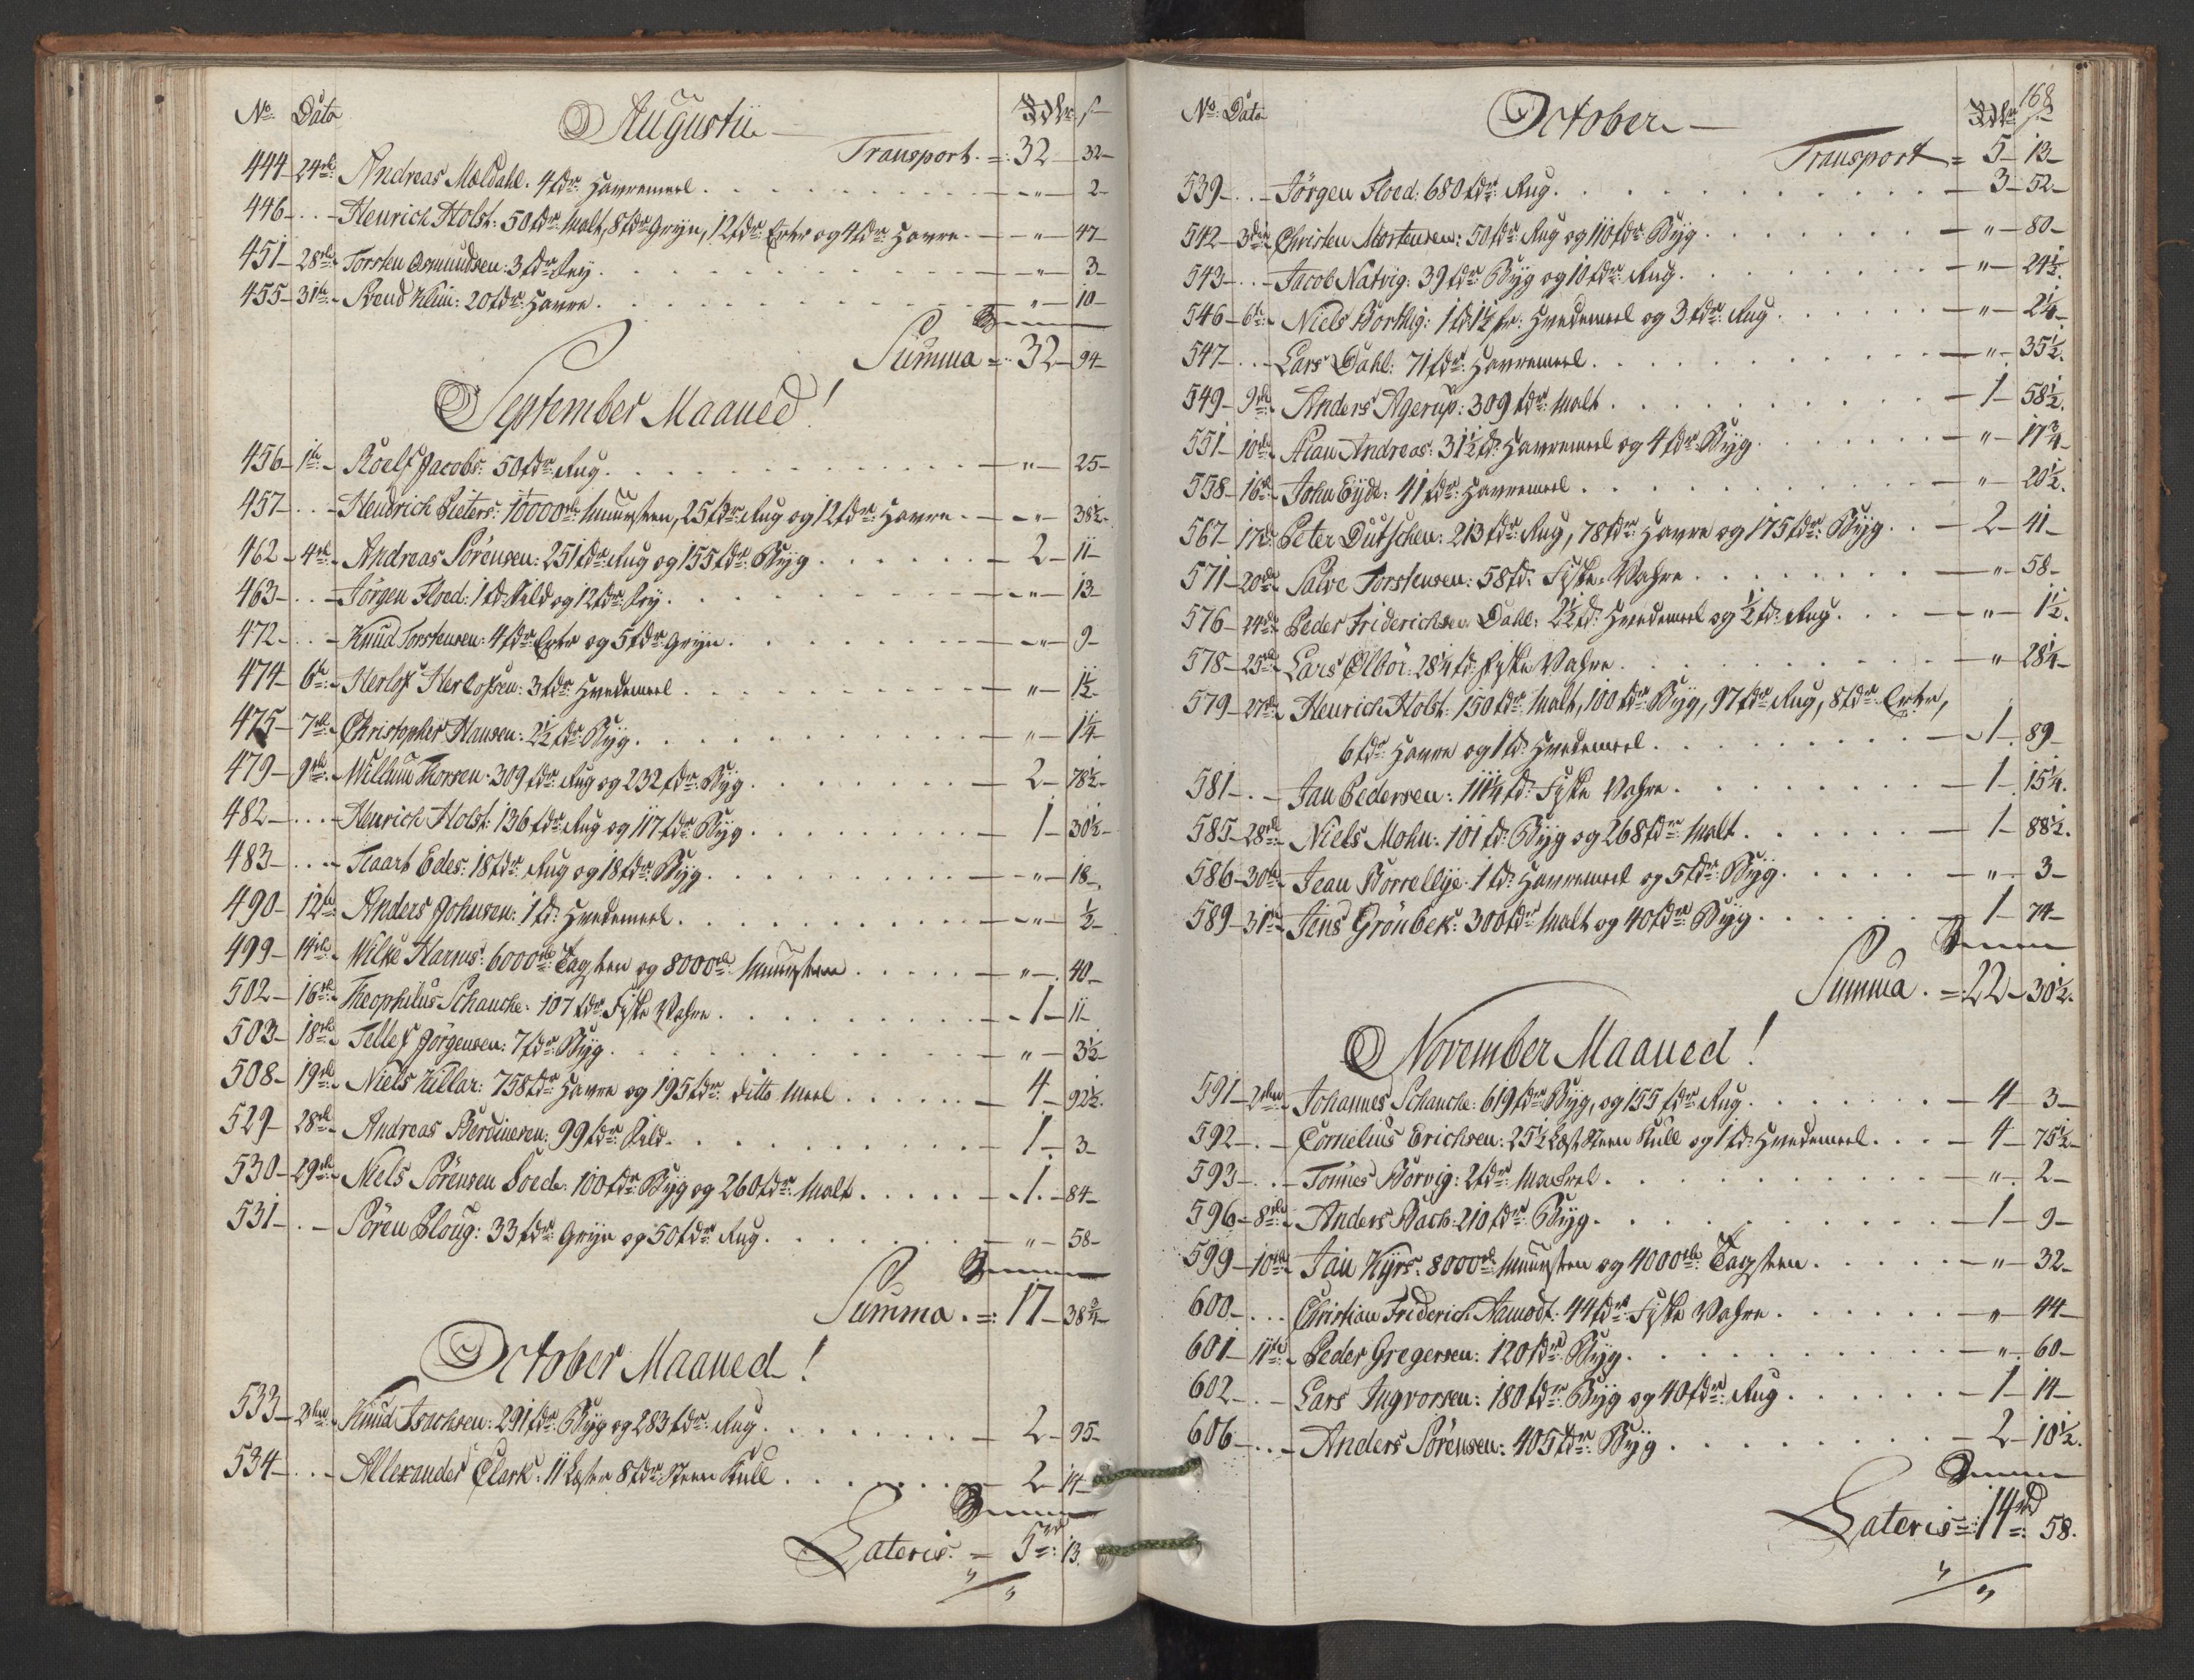 No. Dato Augustii Rdlr s
Transport = 32 - 32 -
444 - 24de Andreas Moldahl. 4 tdr Havremeel - " - 2 -
446 - . . - Henrich Holst: 50 tdr Malt, 8 tdr Gryn, 12 tdr Erter og 4 tdr Havre - " - 47 -
451 - 28de Torsten Osmundsen: 3 tdr Rug - " - 3 -
455 - 31te Svend Klim: 20 tdr Havre - " - 10 -
Summa = 32 - 94 -
September Maaned!
456 - 1te - Roelf Jacobs: 50 tdr Rug - " - 25 -
457 - . . - Hendrich Pieters: 10000de Muursteen, 25 tdr Rug og 12 tdr Havre - " - 38½ -
462 - 4de - Andreas Sörensen: 251 tdr Rug og 155 tdr Byg - 2 - 11 -
463 - . . - Jörgen Floed: 1 td Sild og 12 tdr - " - 13 -
472 - . . - Knud Torstensen: 4 tdr Erter og 5 tdr Gryn - " - 9 -
474 - 6te - Herlof Herlofsen: 3 tdr Hvedemeel - " - 1½ -
475 - 7de - Christopher Hansen: 2½ tdr Byg - " - 1¼ -
479 - 9de - Willum Thorsen: 309 tdr Rug og 232 tdr Byg - 2 - 78½ -
482 - . . - Henrich Holst: 136 tdr Rug og 117 tdr Byg - 1 - 30½ -
483 - . . - Tiaart Edes: 18 tdr Rug og 18 tdr Byg - " - 18 -
490 - 12te - Anders Johnsen: 1 td Hvedemeel - " - ½ -
499 - 14de - Wilke Harms: 6000de Tagsten og 8000de Muursteen - " - 40 -
502 - 16de - Theophilus Schanche: 107 tdr Fiske Vahre - 1 - 11 -
503 - 18de - Tellef Jörgensen: 7 tdr Byg - " - 3½ -
508 - 19de - Niels Killar: 758 tdr Havre og 195 tdr ditto Meel - 4 - 92½ -
529 - 28de - Andreas Berdinesen: 99 tdr Sild - 1 - 3 -
530 - 29de - Niels Sörensen Loede: 100 tdr Byg og 260 tdr Malt - 1 - 84 -
531 - . - Sören Ploug: 33 tdr Gryn og 50 tdr Rug - " - 58 -
Summa = 17 - 38¾ -
October Maaned!
533 - 2den - Knud Isachsen: 291 tdr Byg og 283 tdr Rug - 2 - 95 -
534 - . . - Allexander Clark: 11 Læster 8 tdr Steen Kull - 2 - 14 -
Lateris = 5rd = 13.
168
No. Dato October Rdlr s
Transport = 5 - 13 -
539 - . . - Jörgen Floed: 680 tdr Rug - 3 - 52 -
542 - 3die - Christen Mortensen: 50 tdr Rug og 110 tdr Byg - " - 80 -
543 - . . - Jacob Natvig: 39 tdr Byg og 10 tdr Rug - " - 24½ -
546 - 6te - Niels Börthig: 1 td 1½ Hvedemeel og 3 tdr Rug - " - 2¼ -
547 - . . - Lars Dahl: 71 tdr Havremeel - " - 35½ -
549 - 9de - Anders Agerup: 309 tdr Malt - 1 - 58½ -
551 - 10de - Alau Andreas: 31½ td Havremeel og 4 tdr Byg - " - 17¾ -
558 - 16de - John Eyde: 41 tdr Havremeel - " - 20½ -
567 - 17de - Peter Dutschen: 213 tdr Rug, 78 tdr Havre og 175 tdr Byg - 2 - 41 -
571 - 20de - Salve Torstensen: 58 td Fiske-Vahre - " - 58 -
576 - 24de - Peder Friderichsen Dahl: 2½ td Hvedemeel og ½ td Rug - " - 1½ -
578 - 25de - Lars Ölbör: 28¼ td Fiske Vahre - " - 28¼ -
579 - 27de - Henrich Holst: 150 tdr Malt, 100 tdr Byg, 97 tdr Rug, 8 tdr Erter,
6 tdr Havre og 1 td Hvedemeel - 1 - 89 -
581 - . . - Jan Pedersen: 111¼ td Fiske Vahre - 1 - 15¼ -
585 - 28de - Niels Mohn: 101 td Byg og 268 tdr Malt - 1 - 88½ -
586 - 30te - Jean Borrellye: 1 td Havremeel og 5 tdr Byg - " - 3 -
589 - 31te - Jens Grönbek: 300 tdr Malt og 40 tdr Byg - 1 - 74 -
Summa = 22 - 30½ -
November Maaned!
591 - 2den - Johannes Schanche: 619 tdr Byg, og 155 tdr Rug - 4 - 3 -
592 - . - Cornelius Erichsen: 25½ Læst Steen Kull og 1 td Hvedemeel - 4 - 75½ -
593 - . . - Tonnes Borvig: 2 tdr Machrel - " - 2 -
596 - 8de - Anders Bach: 210 tdr Byg - 1 - 9 -
599 - 10de - Jan Kyrs: 8000de Muursten og 4000de Tagsten - " - 32 -
600 - . . . Christian Friderich Aamodt: 44 tdr Fiske Vahre - " - 44 -
601 - 11te - Peder Gregersen: 120 tdr Byg - " - 60 -
602 - . . - Lars Ingvorsen: 180 tdr Byg og 40 tdr Rug - 1 - 14 -
606 - . . . - Anders Sörensen: 405 tdr Byg - 2 - 10½ -
Lateris = 14rd = 58.